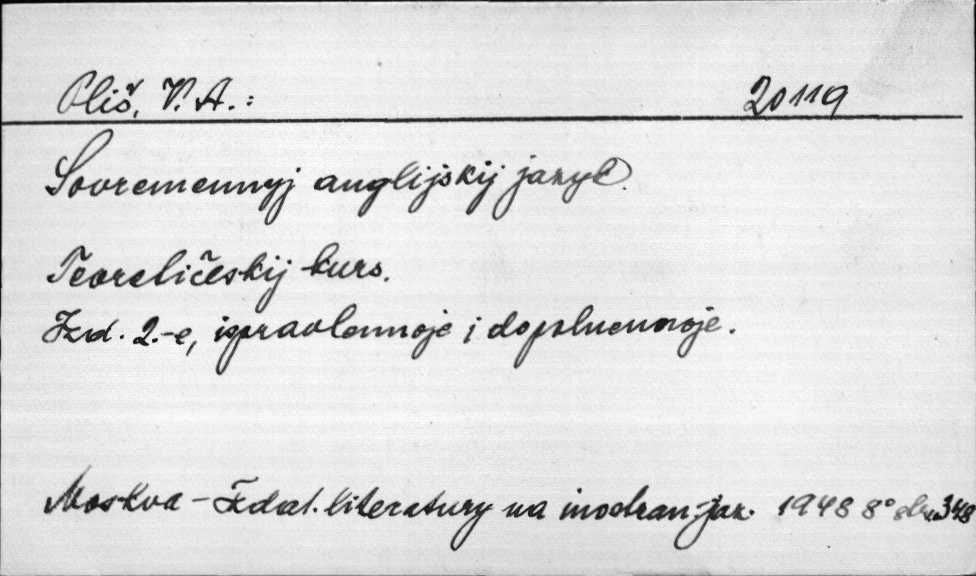 Pliš, V. A.: 20119
Sovremennyj anglijskij jazyk.
Teoretičeskij kurs.
Izd. 2.-e, ispravlennoje i dopolnennoje.
Moskva - Izdat. literatury na inostran. jaz. 1948 8° 348